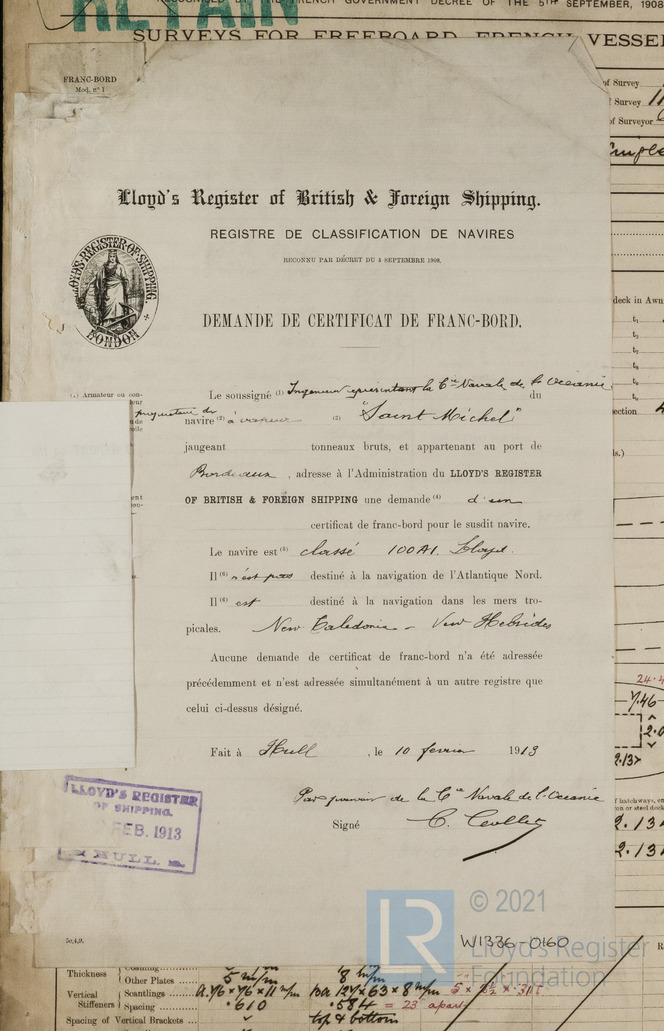 RETAIN
RECOGNISED BY THE FRENCH GOVERNMENT DECREE OF THE 5TH SEPTEMBER, 1908
SURVEYS FOR FREEBOARD, FRENCH VESSE
FRANC-BORD
Mod. n° 1
of Survey
of Survey 11
of Surveyor
Lloyd's Register of British & Foreign Shipping.
REGISTRE DE CLASSIFICATION DE NAVIRES
RECONNU PAR DÉCRET DU 5 SEPTEMBRE 1908.
LLOYD'S REGISTER OF SHIPPING
LONDON
DEMANDE DE CERTIFICAT DE FRANC-BORD.
deck in Awn
t₁
t₂
t₃
t₄
t₅
t₆
ection
(1) Armateur ou con-
Le soussigné (1) Ingenieur representant la Cie Navale de l'Océanie
du
propriétaire du
navire (2) à vapeur (3) "Saint Michel"
jaugeant tonneaux bruts, et appartenant au port de
Bordeaux, adresse à l'Administration du LLOYD'S REGISTER
OF BRITISH & FOREIGN SHIPPING une demande (4) d'un
certificat de franc-bord pour le susdit navire.
Le navire est (5) classé 100 A1. Lloyd.
Il (6) n'est pas destiné à la navigation de l'Atlantique Nord.
Il (6) est destiné à la navigation dans les mers tro-
picales. New Caledonia - New Hebrides
Aucune demande de certificat de franc-bord n'a été adressée
précédemment et n'est adressée simultanément à un autre registre que
celui ci-dessus désigné.
24.4
7.46
2.13
Fait à Hull, le 10 fevrier 1913
Par pouvoir de la Cie Navale de l'Oceanie
Signé C.
LLOYD'S REGISTER
OF SHIPPING.
FEB. 1913
HULL.
of hatchways, en
on or steel deck
2.13
2.13
© 2021
LR
Lloyd's Register
Foundation
W1336-0160
5c,4,9.
Thickness
Other Plates
5 m/m 8 m/m
Vertical Stiffeners
Scantlings a. 76 x 76 x 11 m/m 10a 127 x 63 x 8 m/m 5 x 2½ x .31
Spacing .610 .584 = 23 apart
Spacing of Vertical Brackets top & bottom